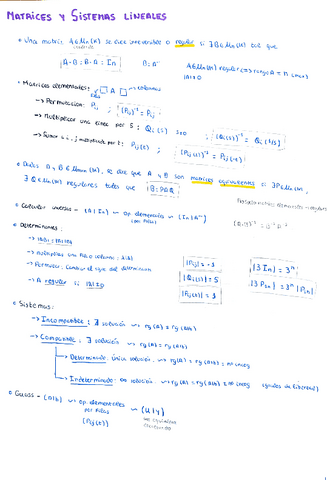 MATRICES Y SISTEMAS LINEALES
• Una matriz A∈Mn(K) se dice inversible o regular si ∃B∈Mn(K) tal que
A·B = B·A = In
A∈Mn(K) regular ⟺ rang A = n (max)
• Matrices elementales:
filas
A
columnas
→ Permutación: Pij ; (Pij)⁻¹ = Pij
→ Multiplicar una línea por S: Qi(s) s≠0 ; (Qi(s))⁻¹ = Qi(1/s)
→ Sumar i, j multiplicada por t: Pij(t) ; (Pij(t))⁻¹ = Pij(-t)
• Dadas A y B∈Mmxn(K), se dice que A y B son matrices equivalentes si ∃P∈Mm(K),
∃Q∈Mn(K) regulares tales que B = PAQ
• Calcular inversa - (A|In) op. elementales (In|A⁻¹)
por filas
• Determinantes:
→ Multiplicar una fila o columna
→ Permutar: Cambia el signo del determinante
→ A regular si |A|≠0
|Pij| = -1
|Qi(s)| = S
|Pij(t)| = 1
|3In| = 3ⁿ
• Sistemas:
→ Incompatible: ∄ solución rg(A) ≠ rg(A|b)
→ Compatible: ∃ solución rg(A) = rg(A|b)
→ Determinado: única solución rg(A) = rg(A|b) = nº incóg
→ Indeterminado: ∞ solución rg(A) = rg(A|b) ≠ nº incóg (grados de libertad)
• Gauss - (A|b) op. elementales (U|y)
por filas
(Pij(t))